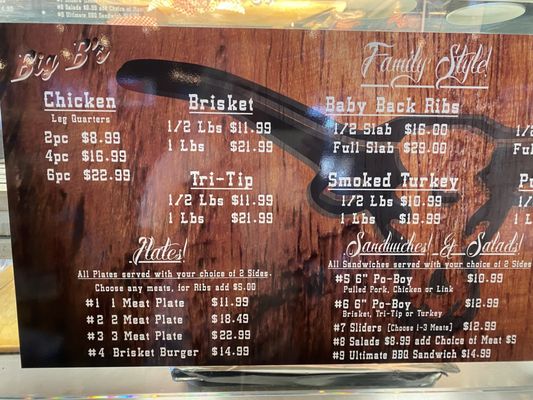 #8 Salads $8.99 add Choice of M
#9 Ultimate BBQ Sandwich $14.99
Big B's
Family Style!
Chicken
Leg Quarters
2pc $8.99
4pc $16.99
6pc $22.99
Brisket
1/2 Lbs $11.99
1 Lbs $21.99
Tri-Tip
1/2 Lbs $11.99
1 Lbs $21.99
Baby Back Ribs
1/2 Slab $16.00
Full Slab $29.00
Smoked Turkey
1/2 Lbs $10.99
1 Lbs $19.99
1/2
Full
Pu
1/2 L
1 Lbs
Plates!
All Plates served with your choice of 2 Sides.
Choose any meats, for Ribs add $5.00
#1 1 Meat Plate $11.99
#2 2 Meat Plate $18.49
#3 3 Meat Plate $22.99
#4 Brisket Burger $14.99
Sandwiches! & Salads!
All Sandwiches served with your choice of 2 Sides
#5 6" Po-Boy $10.99
Pulled Pork, Chicken or Link
#6 6" Po-Boy $12.99
Brisket, Tri-Tip or Turkey
#7 Sliders [Choose 1-3 Meats] $12.99
#8 Salads $8.99 add Choice of Meat $5
#9 Ultimate BBQ Sandwich $14.99